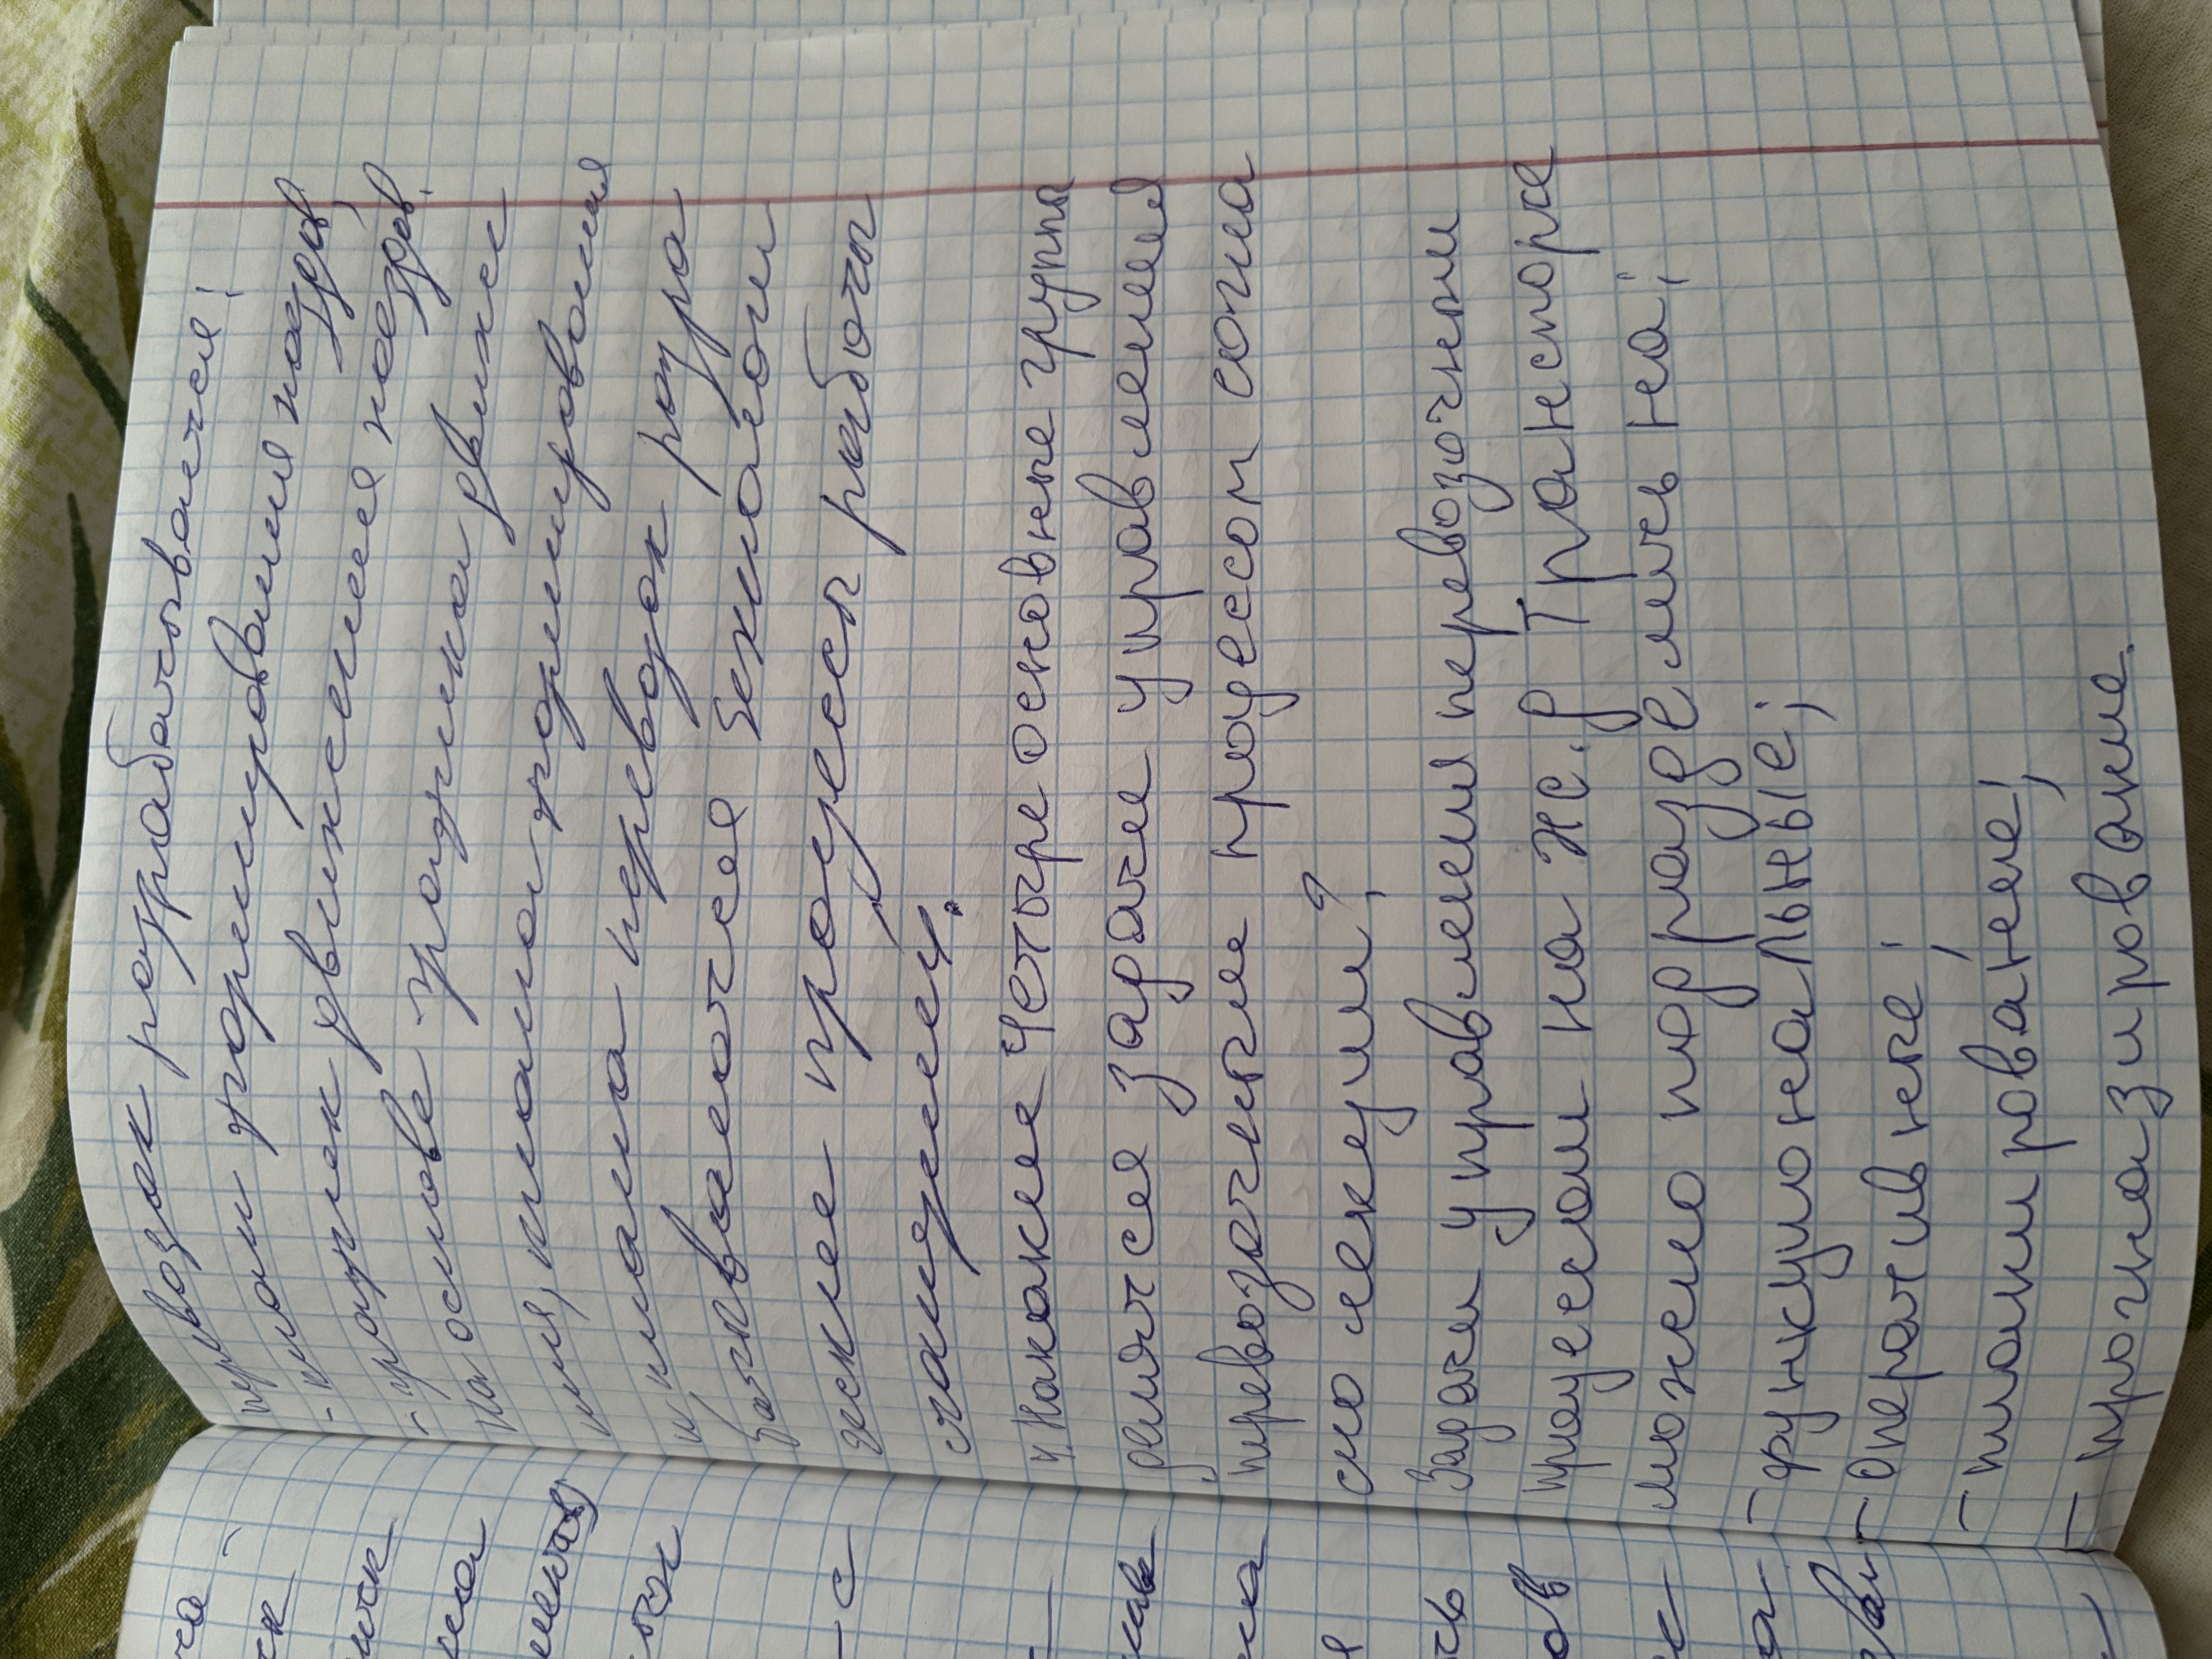 перевозок разрабатывается!
- план формирования поездов,
- график движения поездов.
на основе графика движе
ния, плана формирования
и плана перевозок разра
батываются технологи
ческие процессы работы
станций.
4. На какие четыре основные группы
делятся задачи управления
перевозочные процессом согла
сно лекции?
Задачи управления перевозочным
процессом на ж.д транспорте
можно подразделить на;
- функциональные;
- оперативные;
- планирование;
- прогназирование.